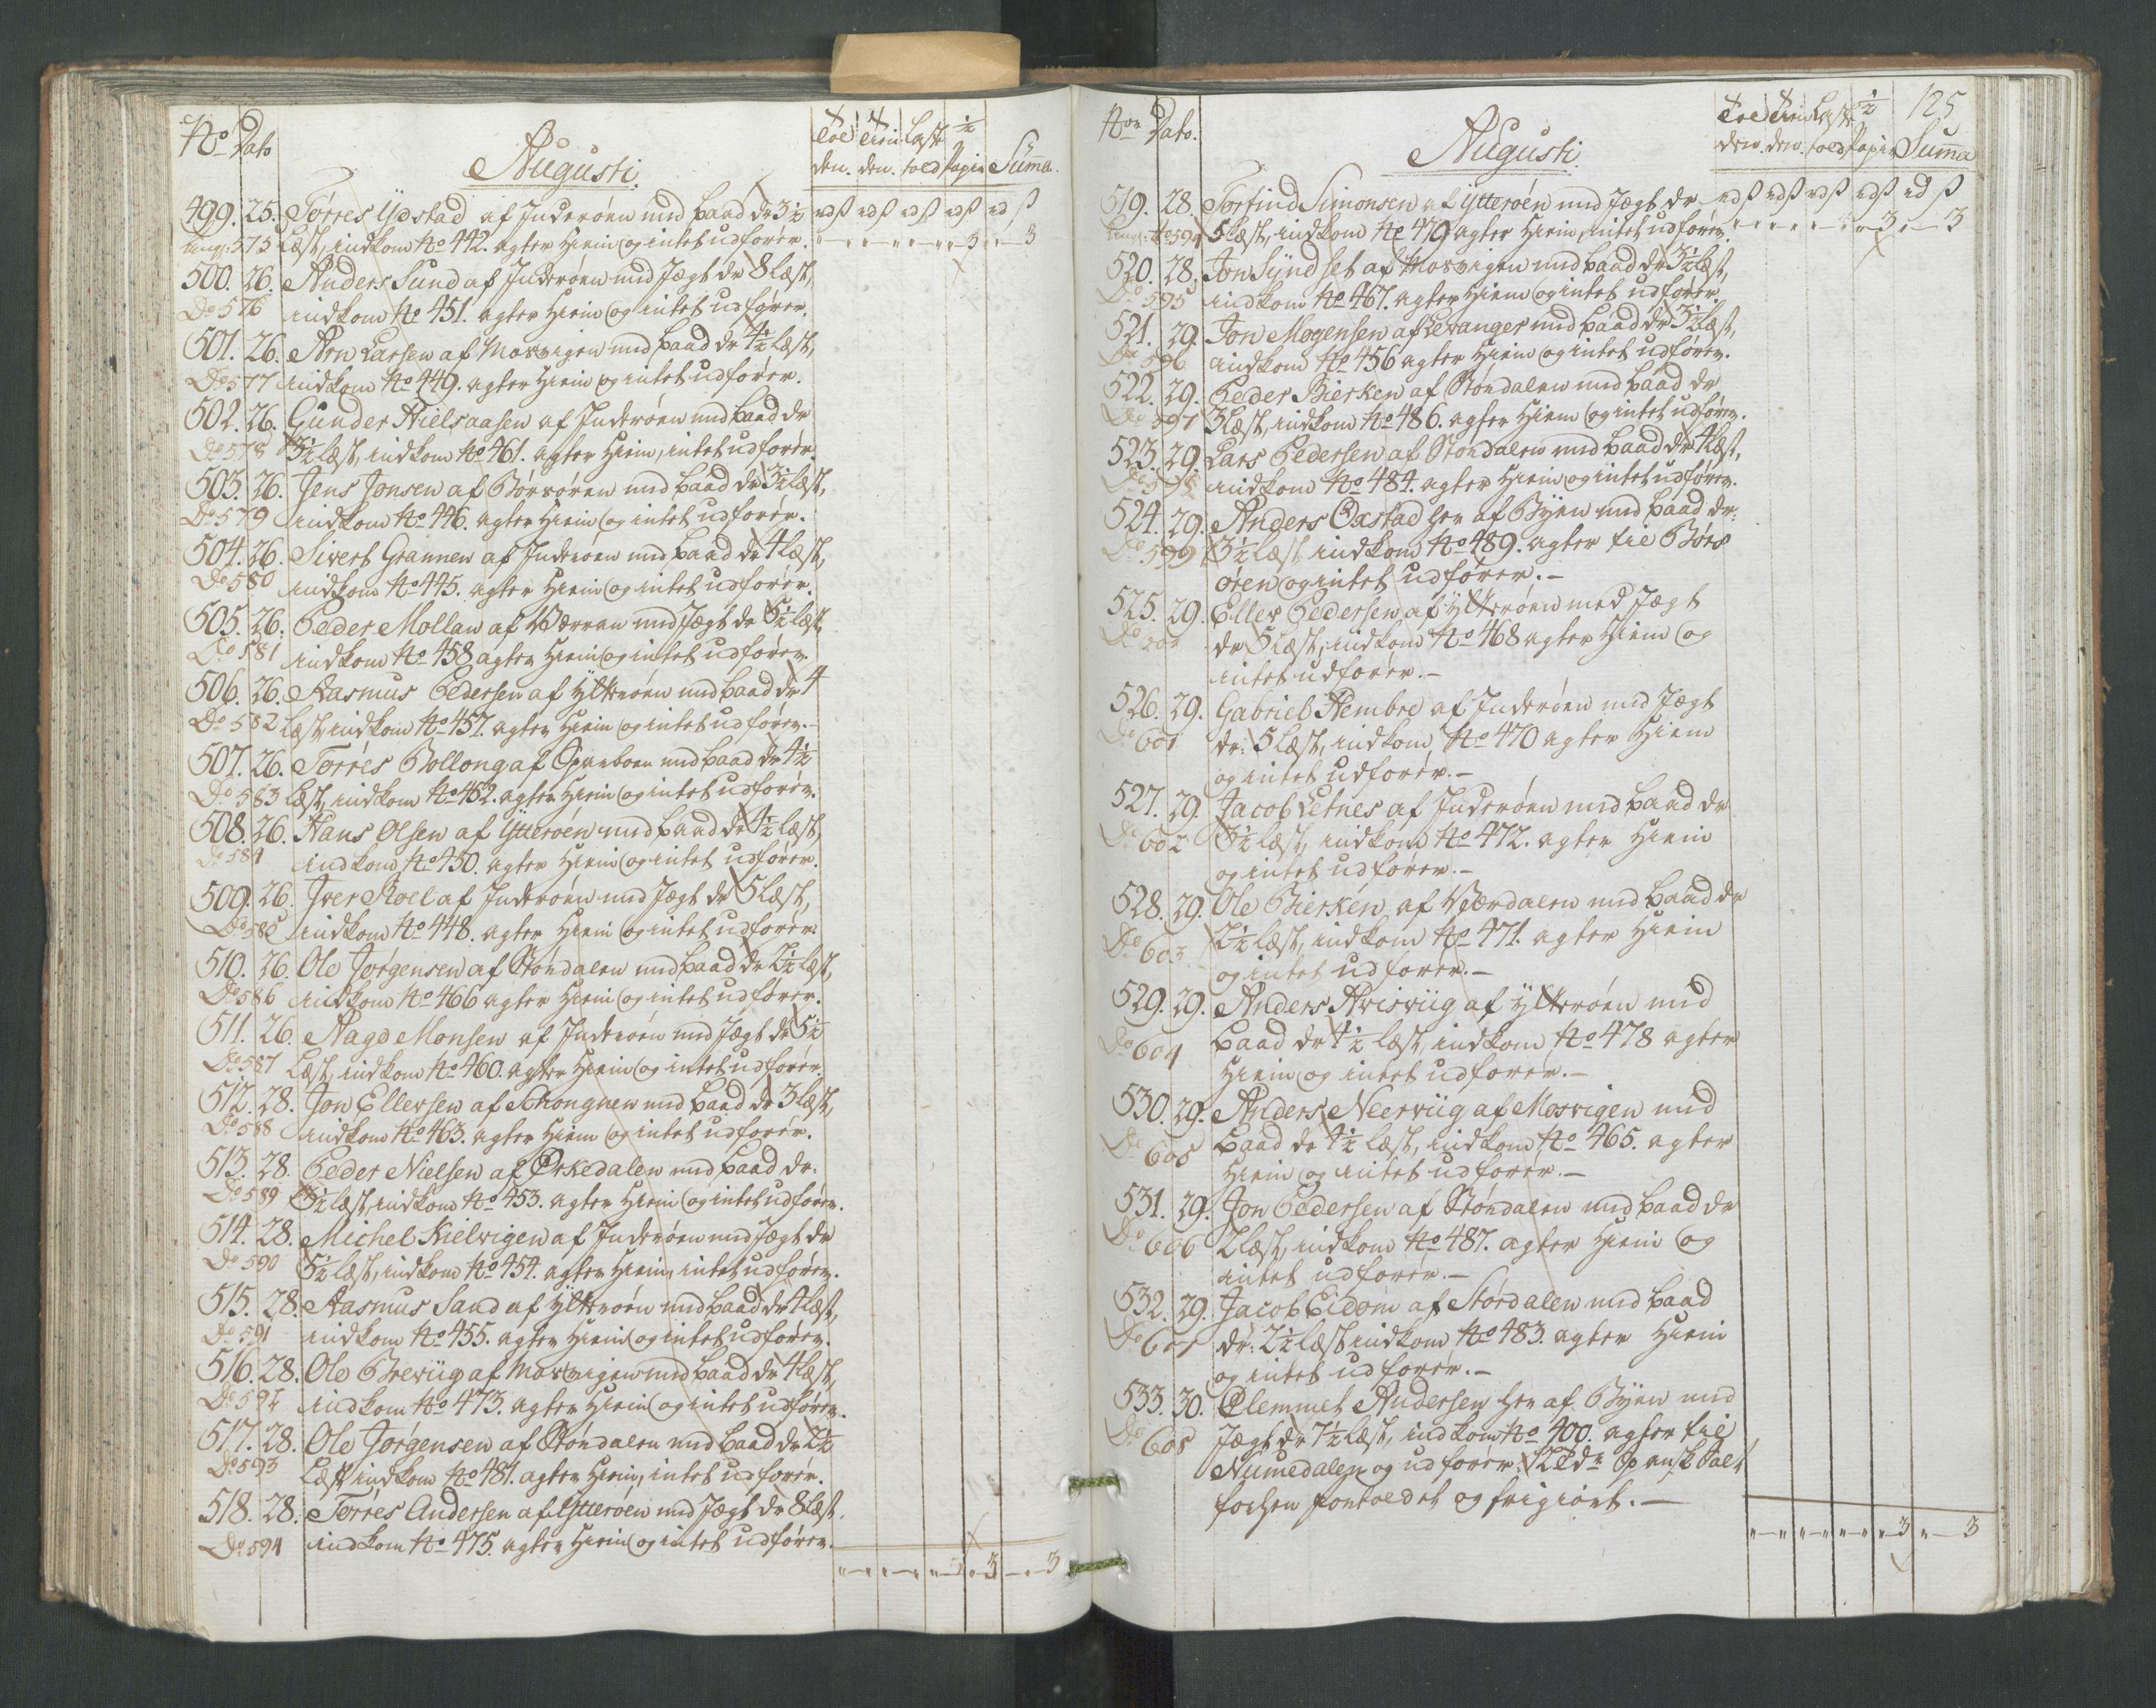 No Dato
Augusti
Toe Trei Læst ½
den. den. told Papir Suma.
499. 25. Torres Ydstad af Inderöen med baad dr 3½ rdß rdß rdß rdß rd ß
Ang: 575 Læst, indkom No 442. agter Hiem og intet udförer. 3 3
500. 26. Anders Sund af Inderöen med Jægt dr 8 læst,
Do 576 indkom No 451. agter Hiem og intet udförer.
501. 26. Arn Larsen af Mosvigen med baad dr 4½ læst,
Do 577 indkom No 449. agter Hiem og intet udförer.
502. 26. Gunder Hielsaasen af Inderöen med baad dr
Do 578 3½ læst, indkom No 461. agter Hiem, intet udförer.
503. 26. Jens Jonsen af Börsören med baad dr 3½ læst,
Do 579 indkom No 446. agter Hiem og intet udförer.
504. 26. Sivert Grannen af Inderöen med baad dr 4 læst,
Do 580 indkom No 445. agter Hiem og intet udförer.
505. 26. Peder Mollan af Værran med Jægt dr 5½ læst,
Do 581 indkom No 458 agter Hiem og intet udförer.
506. 26. Rasmus Pedersen af Ytteröen med baad dr 4
Do 582 læst, indkom No 457. agter Hiem og intet udförer.
507. 26. Torres Bollong af Sparboen med baad dr 4½
Do 583 Læst, indkom No 452. agter Hiem og intet udförer.
508. 26. Hans Olsen af Ytteröen med baad dr 4½ læst,
Do 584 indkom No 450. agter Hiem og intet udförer.
509. 26. Iver Roel af Inderöen med Jægt dr 5 læst,
Do 585 indkom No 448. agter Hiem og intet udförer.
510. 26. Ole Jorgensen af Stördalen med baad dr 2½ læst,
Do 586 indkom No 466 agter Hiem og intet udförer.
511. 26. Aage Monsen af Inderöen med Jægt dr 5½
Do 587 Læst, indkom No 460. agter Hiem og intet udförer.
512. 28. Jon Ellersen af Schongnen med baad dr 3 læst,
Do 588 indkom No 463. agter Hiem og intet udförer.
513. 28. Peder Nielsen af Orkedalen med baad dr.
Do 589 3½ læst, indkom No 453. agter Hiem og intet udförer.
514. 28. Michel Kielvigen af Inderöen med Jægt dr
Do 590 5½ læst, indkom No 454. agter Hiem, intet udförer.
515. 28. Rasmus Sand af Ytteröen med baad dr 4 læst,
Do 591 indkom No 455. agter Hiem og intet udförer.
516. 28. Ole Breviig af Mosvigen med baad dr 4 læst,
Do 592 indkom No 473. agter Hiem og intet udförer.
517. 28. Ole Jörgensen af Stördalen med baad dr 2½
Do 593 Læst, indkom No 481. agter Hiem, intet udförer.
518. 28. Torres Andersen af Ytteröen med Jægt dr 8 læst.
Do 594 indkom No 475. agter Hiem og intet udförer.
3 3
Nor Dato.
Augusti
Toe Trei Læst ½ 125
den. den. told Papir Suma
519. 28. Torfind Simonsen af Ytteröen med Jægt dr rdß rdß rdß rdß rd ß
Ang: No 594 5 læst, indkom No 479 agter Hiem, intet udförer. 3 3
520. 28. Jon Syndset af Mosvigen med baad dr 3½ læst,
Do 595 indkom No 467. agter Hiem og intet udförer.
521. 29. Jon Mogensen af Levanger med baad dr 3½ læst,
Do 596 indkom No 456 agter Hiem og intet udförer.
522. 29. Peder Bierken af Stördalen med baad dr
Do 597 3 Læst, indkom No 486. agter Hiem og intet udförer.
523. 29. Lars Pedersen af Stördalen med baad dr 4 læst,
Do 598 indkom No 484. agter Hiem og intet udförer.
524. 29. Anders Oxstad her af Byen med baad dr:
Do 599 3½ læst indkom No 489. agter til Börs
ören og intet udförer. -
525. 29. Eller Pedersen af Ytteröen med Jægt
Do 600 dr 5 Læst, indkom No 468 agter Hiem og
intet udförer. -
526. 29. Gabriel Hembre af Inderöen med Jægt
Do 601 dr: 5 læst, indkom No 470 agter Hiem
og intet udförer. -
527. 29. Jacob Letnes af Inderöen med baad dr
Do 602 3½ læst, indkom No 472. agter Hiem
og intet udförer. -
528. 29. Ole Bierken af Værdalen med baad dr
Do 603 2½ læst, indkom No 471. agter Hiem
og intet udförer. -
529. 29. Anders Avisviig af Ytteröen med
Do 604 baad dr 4½ læst, indkom No 478 agter
Hiem og intet udförer. -
530. 29. Anders Neerviig af Mosvigen med
Do 605 baad dr 4½ læst, indkom No 465. agter
Hiem og intet udförer. -
531. 29. Jon Pedersen af Stördalen med baad dr
Do 606 2 læst, indkom No 487. agter Hiem og
intet udförer. -
532. 29. Jacob Eidom af Stördalen med baad
Do 607 dr: 2½ læst indkom No 483. agter Hiem
og intet udförer. -
533. 30. Clemmet Andersen her af Byen med
Do 608 Jægt dr 7½ læst, indkom No 400. agter til
Numedalen og udförer: 12 Tdr Spansk Salt
forhen fortoldet og frigiort. -
3 3